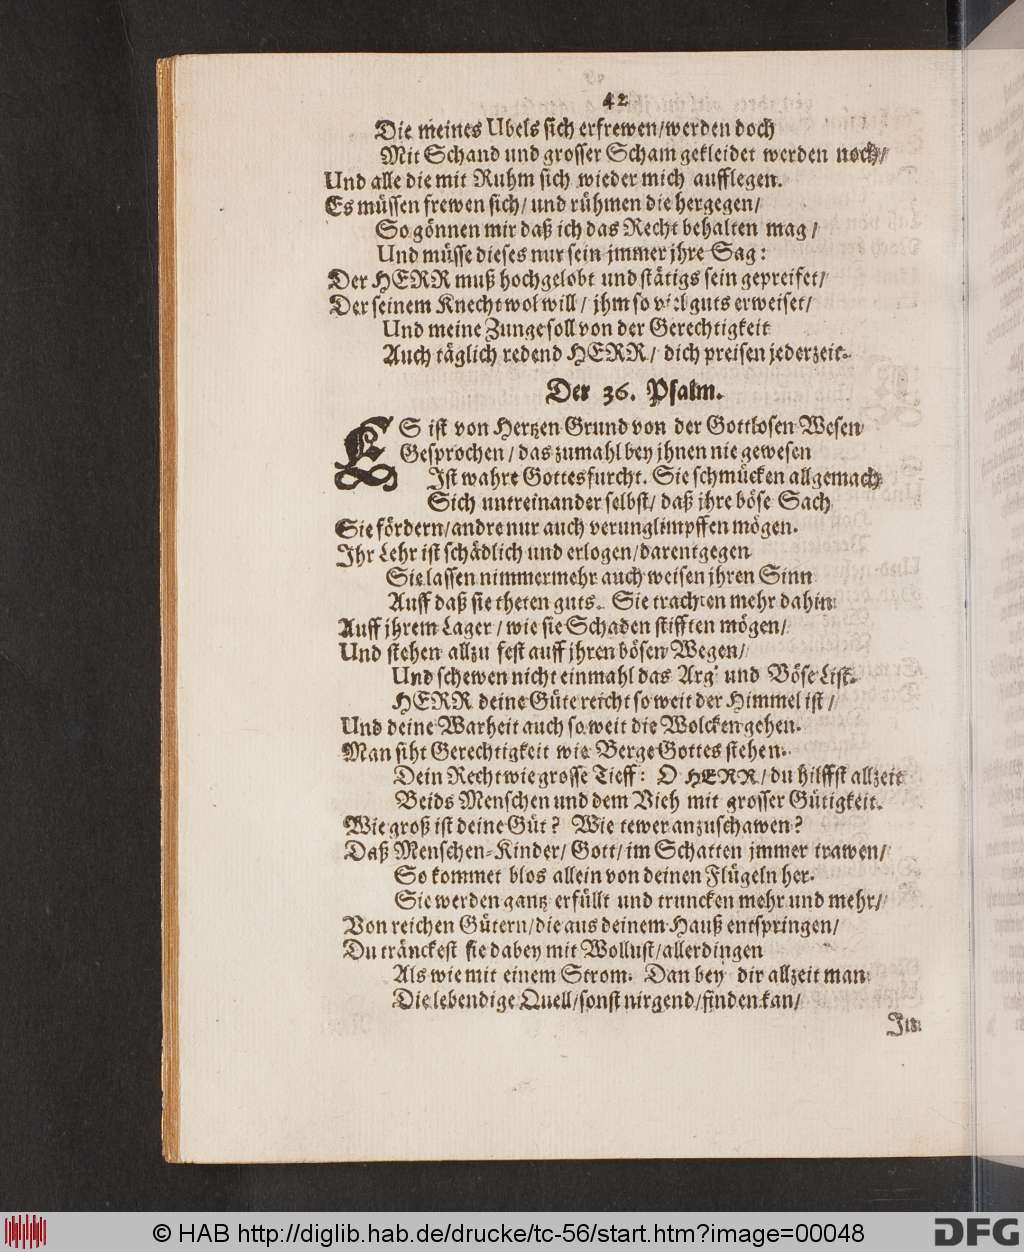 42
Die meines Ubels sich erfrewen/werden doch
Mit Schand und grosser Scham gekleidet werden noch/
Und alle die mit Ruhm sich wieder mich aufflegen.
Es müssen frewen sich/ und rühmen die hergegen/
So gönnen mir daß ich das Recht behalten mag/
Und müsse dieses nur sein jmmer jhre Sag:
Der HERR muß hochgelobt und stätigs sein gepreiset/
Der seinem Knecht wol will/ jhm so viel guts erweiset/
Und meine Zunge soll von der Gerechtigkeit
Auch täglich redend HERR/ dich preisen jederzeit.
Der 36. Psalm.
ES ist von Hertzen Grund von der Gottlosen Wesen
Gesprochen/ das zumahl bey jhnen nie gewesen
Ist wahre Gottesfurcht. Sie schmücken allgemach
Sich untreinander selbst/ daß jhre böse Sach
Sie fördern/andre nur auch verunglimpffen mögen.
Ihr Lehr ist schädlich und erlogen/darentgegen
Sie lassen nimmermehr auch weisen jhren Sinn
Auff daß sie theten guts. Sie trachten mehr dahin
Auff jhrem Lager/ wie sie Schaden stifften mögen/
Und stehen allzu fest auff jhren bösen Wegen/
Und schewen nicht einmahl das Arg' und Böse List.
HERR deine Güte reicht so weit der Himmel ist/
Und deine Warheit auch so weit die Wolcken gehen.
Man siht Gerechtigkeit wie Berge Gottes stehen.
Dein Recht wie grosse Tieff: O HERR/du hilffst allzeit
Beids Menschen und dem Vieh mit grosser Gütigkeit.
Wie groß ist deine Güt? Wie tewer anzuschawen?
Daß Menschen-Kinder/ Gott/im Schatten jmmer trawen/
So kommet blos allein von deinen Flügeln her.
Sie werden gantz erfüllt und truncken mehr und mehr/
Von reichen Gütern/die aus deinem Hauß entspringen/
Du tränckest sie dabey mit Wollust/allerdingen
Als wie mit einem Strom. Dan bey dir allzeit man
Die lebendige Quell/sonst nirgend/finden kan/
© HAB http://diglib.hab.de/drucke/tc-56/start.htm?image=00048
DFG